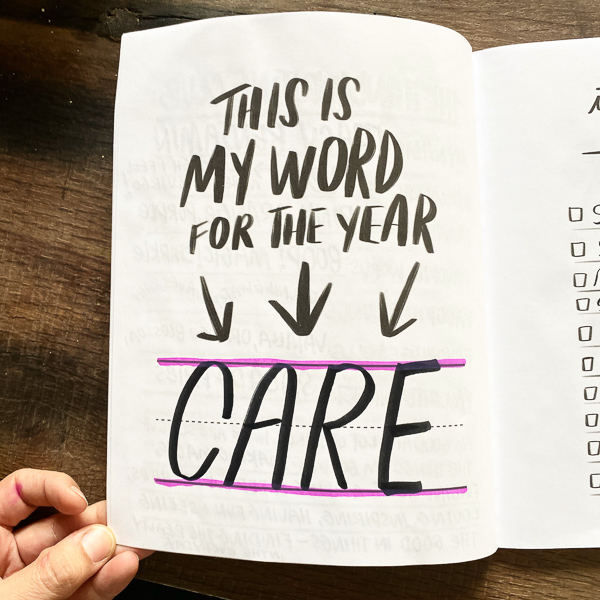 THIS IS
MY WORD
FOR THE YEAR
CARE